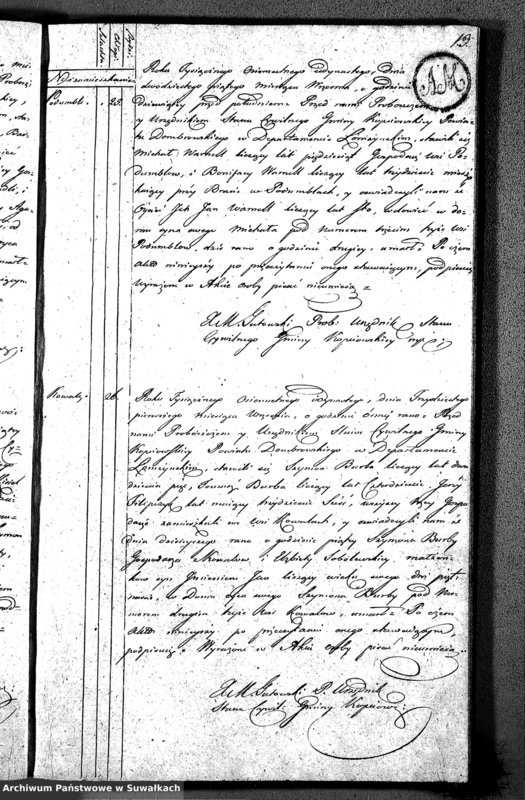 13.
AM
Podumbl. 25.
Roku Tysiącznego osiemsetnego Jedynastego, dnia
dwudziestego piątego miesiąca Września, o godzinie
dziewiątey przed południem. Przed nami Proboszczem
y Urzędnikiem Stanu Cywilnego Gminy Kopciowskiey, Powiatu
Dombrowskiego w Departamencie Łomżyńskim, stawili się
Michał Warnell liczący lat pięćdziesiąt Gospodarz wsi Po-
dumblow, i Bonifacy Warnell liczący lat trzydzieście miesz-
kaiący przy Bracie w Podumblach, y oświadczyli nam iż
Oyciec Ich Jan Warnell liczący lat Sto, wdowiec w do-
mu syna swego Michała pod Numerem trzecim teyże wsi
Podumblow, dziś rano o godzinie drugiey, umarł. Po czem
Akt ninieyszy po przeczytaniu onego stawaiącym, podpisany
Wyrażone w Akcie osoby pisać nieumieią =
X. M. Gutowski Prob: Urzędnik Stanu
Cywilnego Gminy Kopciowskiey mp:
Kowale. 26.
Roku Tysiącznego Osiemsetnego Jedynastego, dnia Trzydziestego
pierwszego Miesiąca Września, o godzinie ósmey rano. Przed
nami Proboszczem y Urzędnikiem Stanu Cywilnego Gminy
Kopciowskiey Powiatu Dombrowskiego w Departamencie
Łomżyńskim, stawili się Szymon Burba liczący lat dwa
dzieścia pięć, Burba liczący lat Czterdzieści, Jerzy
Filipczyk lat maiący trzydzieście Sześć, wszyscy trzey Gospo
darze zamieszkali we wsi Kowalach, y oświadczyli nam iż
dnia dzisieyszego rano o godzinie piątey Szymona Burby
Gospodarza z Kowalow i Elżbiety Sobolewskiey małżon-
kow syn Imieniem Jan liczący wieku swego dni pięt-
naście, w Domu Oyca swego Szymona Burby pod Nu-
merem drugim teyże Wsi Kowalow, umarł. Po czem
Akt ninieyszy po przeczytaniu onego stawaiącym,
podpisany. Wyrażone w Akcie osoby pisać nieumieią.
X. M. Gutowski P. Urzędnik
Stanu Cywil: Gminy Kopciow:
Archiwum Państwowe w Suwałkach